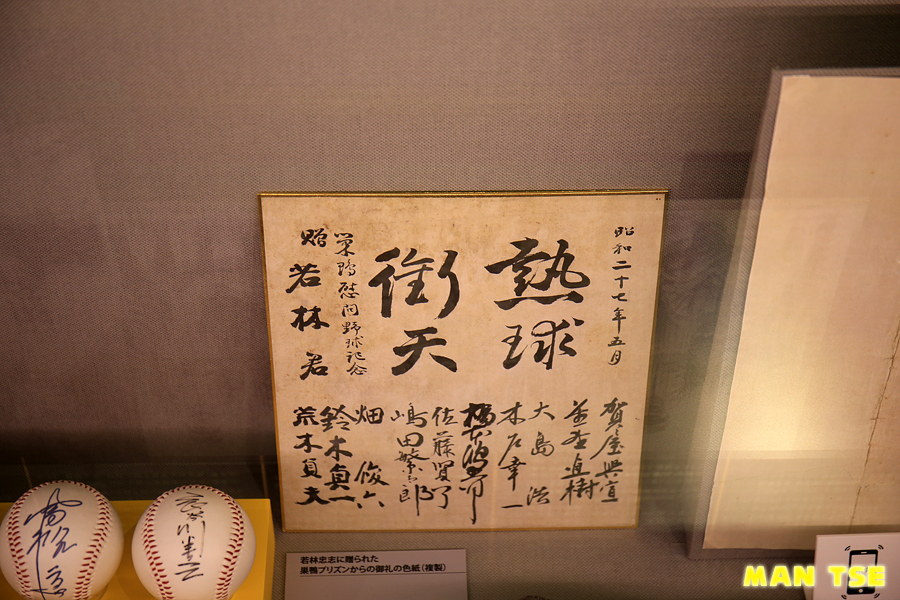 昭和二十七年五月
熱球
衝天
巣鴨慰問野球記念
贈 若林君
賀屋興宣
星野直樹
大島浩
木戸幸一
橋本欣五郎
佐藤賢了
嶋田繁太郎
畑俊六
鈴木貞一
荒木貞夫
若林忠志に贈られた
巣鴨プリズンからの御礼の色紙(複製)
MAN TSE